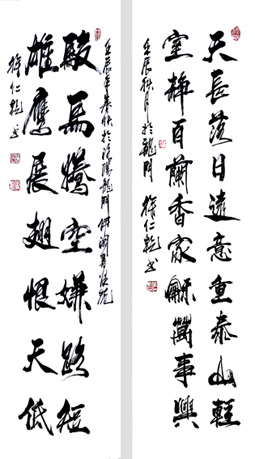 天長落日遠意重泰山輕
室靜百蘭香家龢萬事興
壬辰秋月於龍門 仁乾书
駿馬騰空嫌路短
雄鷹展翅恨天低
壬辰年於洛陽龍門
仁乾书